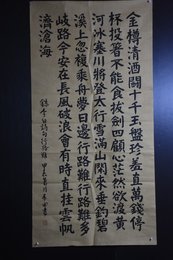 金樽清酒鬪十千玉盤珍羞直萬錢停
杯投箸不能食拔劍四顧心茫然欲渡黃
河冰塞川將登太行雪滿山閑來垂釣碧
溪上忽複乘舟夢日邊行路難行路難多
岐路今安在長風破浪會有時直挂雲帆
濟滄海
錄李白詩句行路難